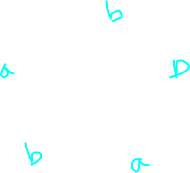 b
a D
b a